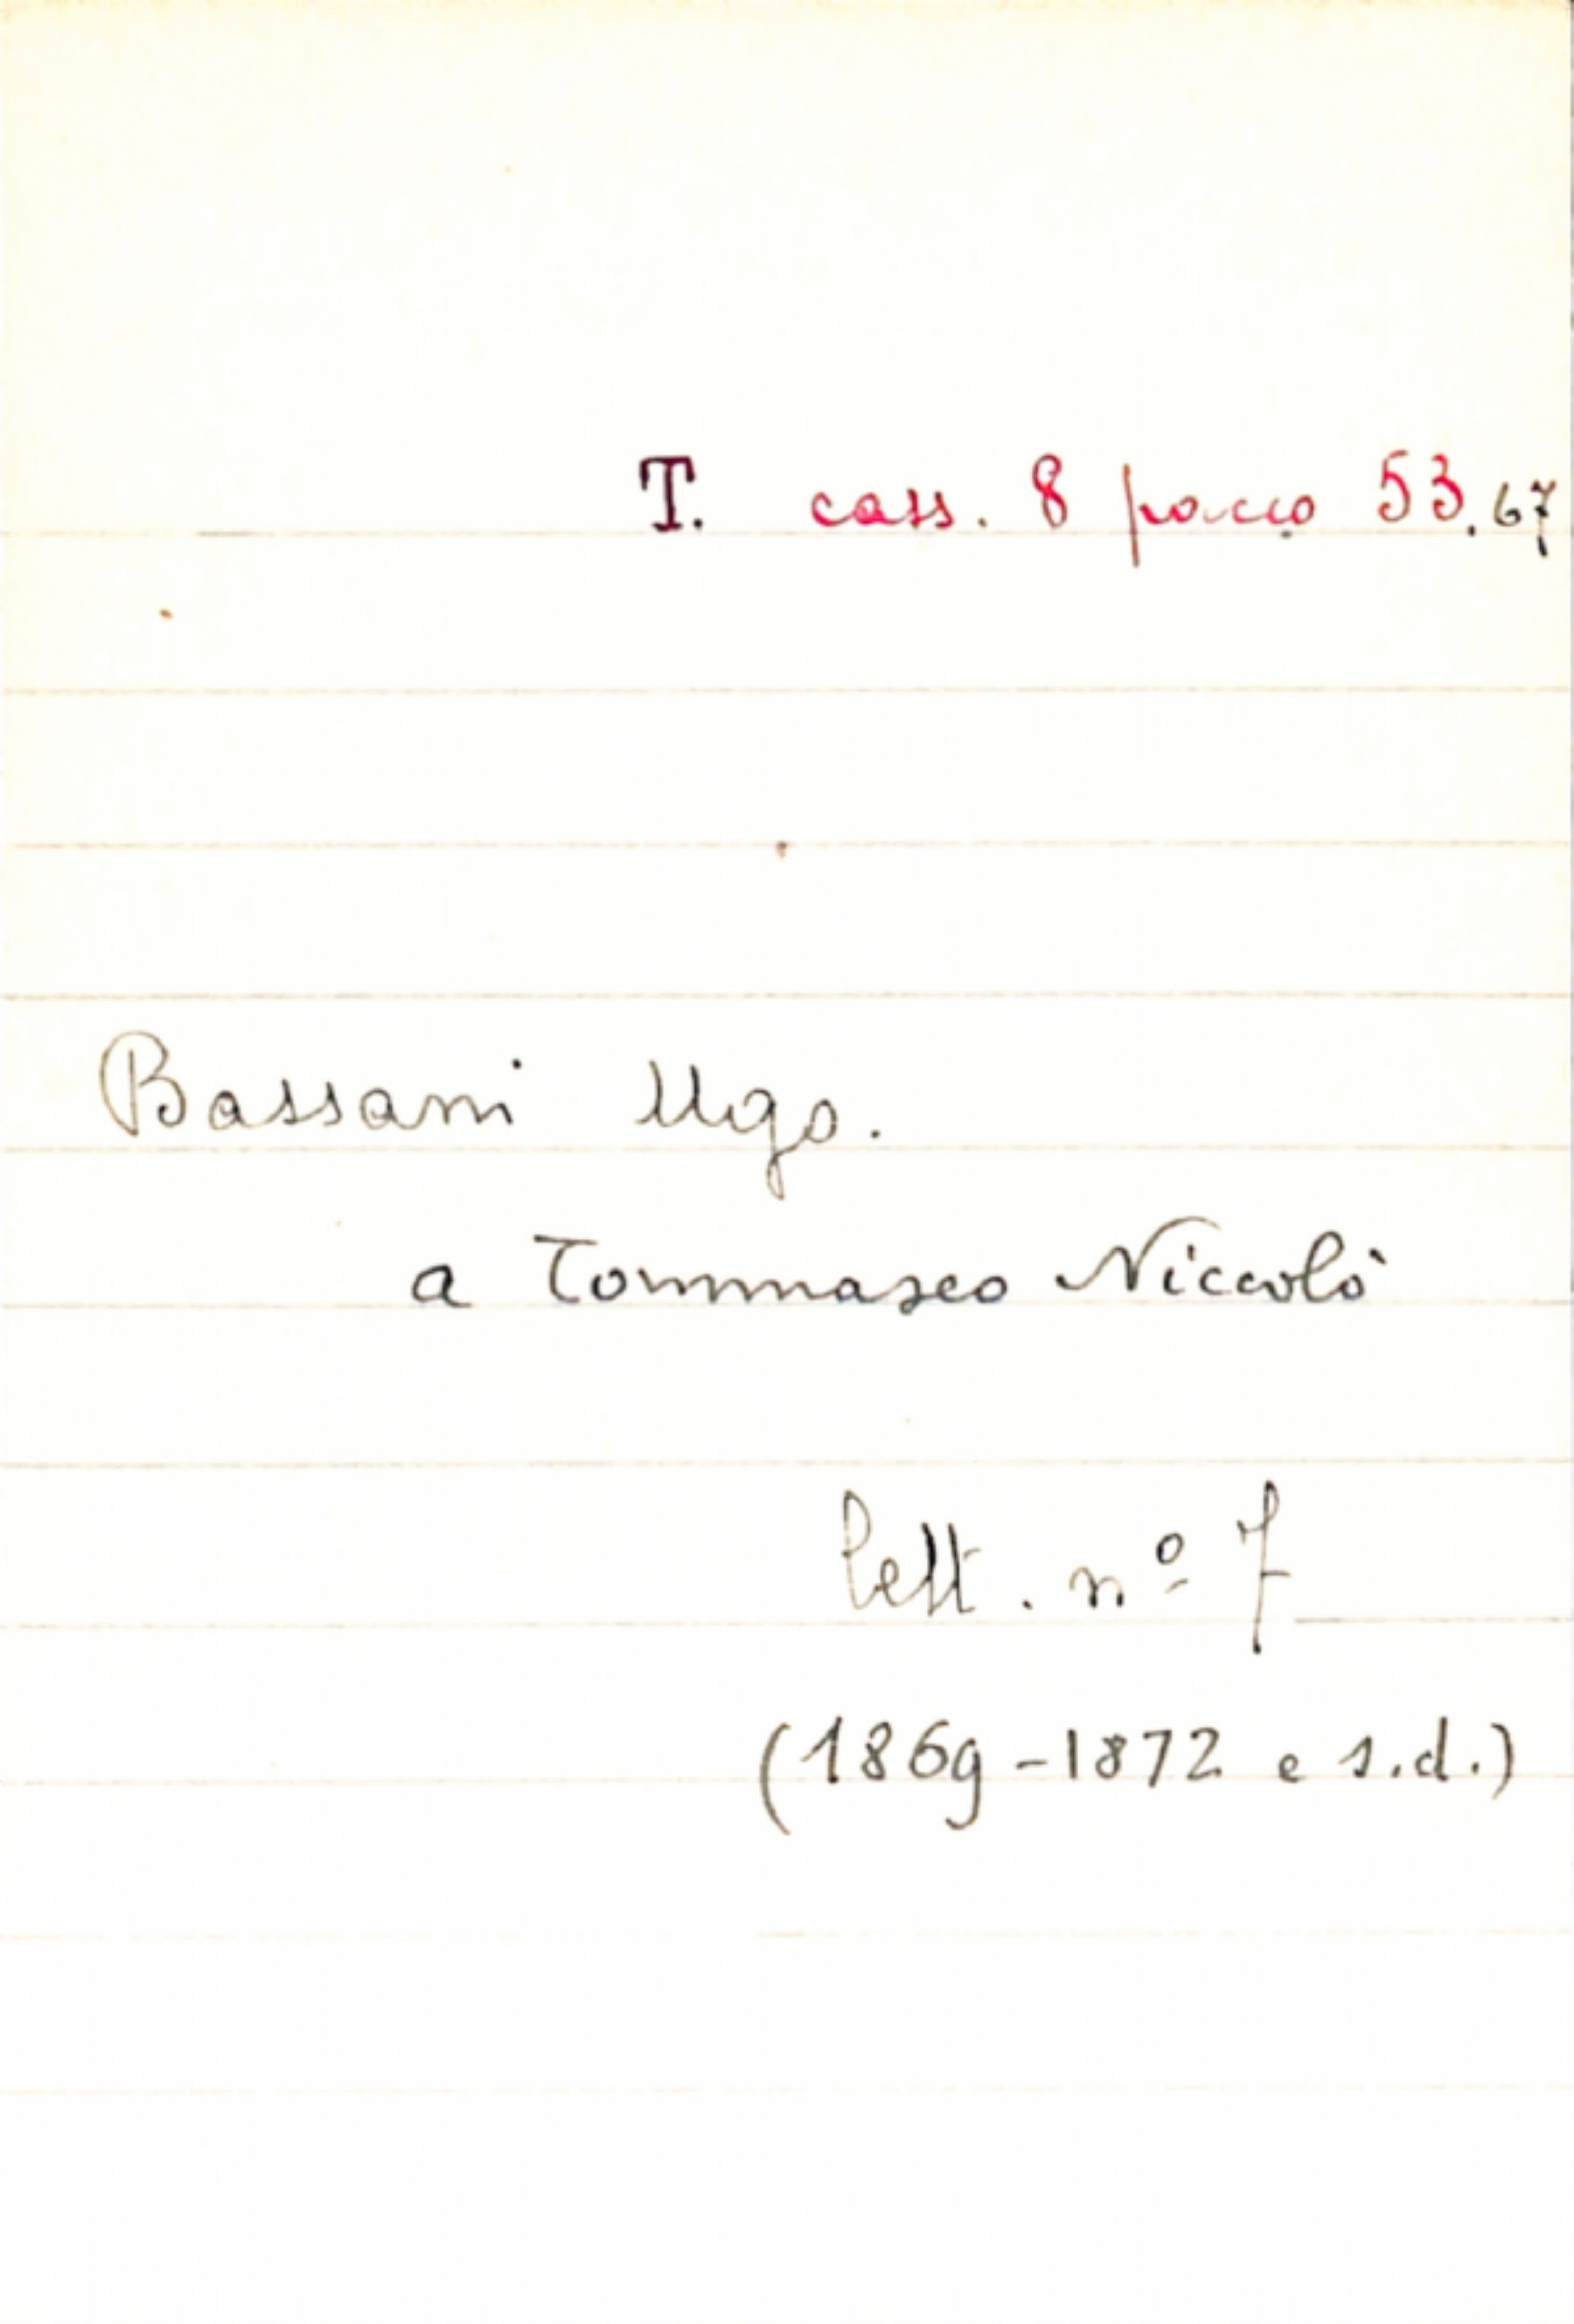 T. cass. 8 pacco 53.67
Bassani Ugo.
a Tommaseo Niccolò
lett. nº 7
(1869-1872 e s.d.)